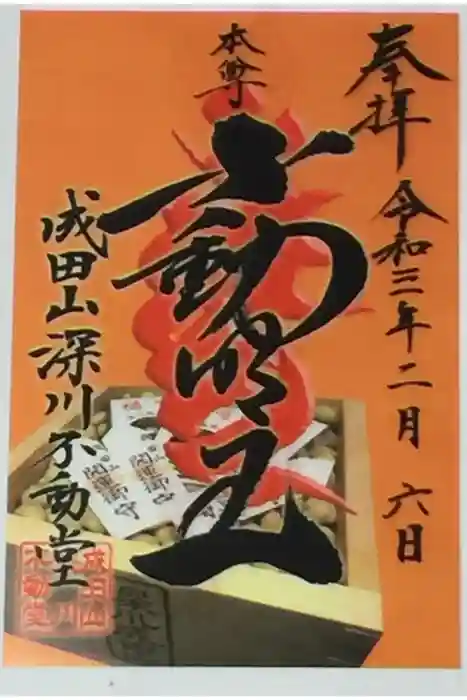 奉拝
令和三年二月六日
本尊
不動明王
成田山深川不動堂
開運御守
開運御守
成田山
深川
不動堂